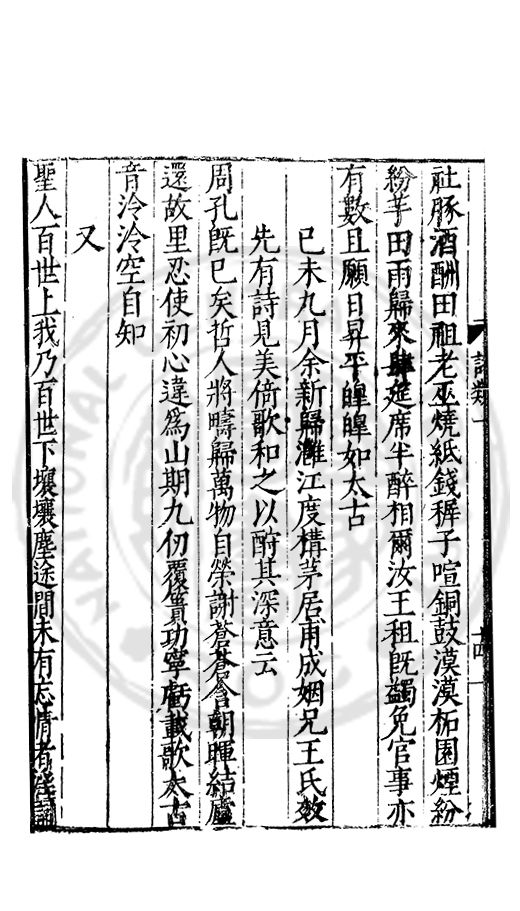 社豚酒酬田祖老巫燒紙錢稺子喧銅鼓漠漠柘園煙紛
紛芋田雨歸來肆筵席半醉相爾汝王租既蠲免官事亦
有數且願日昇平皥皥如太古
己未九月余新歸灘江度構茅居甫成姻兄王氏效
先有詩見美倚歌和之以酧其深意云
周孔既已矣哲人將疇歸萬物自榮謝蒼蒼含朝暉結廬
還故里忍使初心違爲山期九仞覆簣功寧虧載歌太古
音泠泠空自知
又
聖人百世上我乃百世下壤壤塵途間未有忘情者
詩類一
十四
NATIONAL